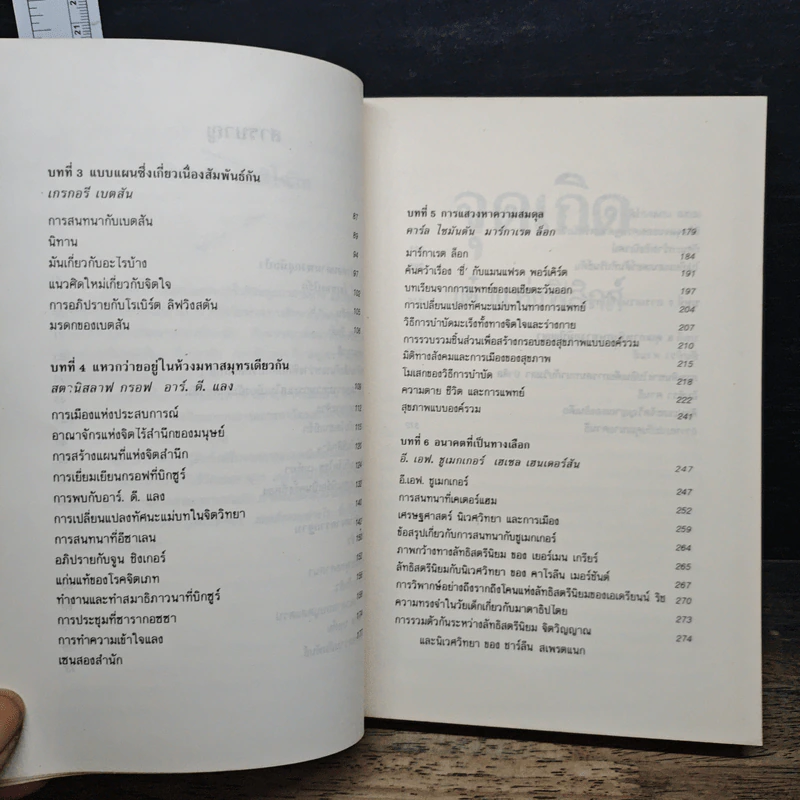 บทที่ 3 แบบแผนซึ่งเกี่ยวเนื่องสัมพันธ์กัน
เกรกอรี เบตสัน
การสนทนากับเบตสัน 87
นิทาน 89
มันเกี่ยวกับอะไรบ้าง 94
แนวศิตใหม่เกี่ยวกับจิตใจ
การอภิปรายกับโรเบิร์ต ลิฟวิงสตัน 102
มรดกของเบตสัน 106
บทที่ 4 แหวกว่ายอยู่ในห้วงมหาสมุทรเดียวกัน
สตานิสลาฟ กรอฟ อาร์. ดี. แลง
การเมืองแห่งประสบการณ์ 112
อาณาจักรแห่งจิตไร้สำนึกของมนุษย์ 115
การสร้างแผนที่แห่งจิตสำนึก 120
การเยี่ยมเยียนกรอฟที่บิกซูร์ 124
การพบกับอาร์. ดี. แลง 132
การเปลี่ยนแปลงทัศนะแม่บทในจิตวิทยา 140
การสนทนาที่อีซาเลน
อภิปรายกับจูน ซิงเกอร์ 150
แก่นแท้ของโรคจิตเภท
ทำงานและทำสมาธิภาวนาที่บิกซูร์
การประชุมที่ซารากอซซา
การทำความเข้าใจแลง
เซนสองสำนัก
บทที่ 5 การแสวงหาความสมดุล
คาร์ล ไซมันตัน มาร์กาเรต ล็อก 179
มาร์กาเรต ล็อก 184
ค้นคว้าเรื่อง 'ชี่' กับแมนแฟรด พอร์เคิร์ต 191
บทเรียนจากการแพทย์ของเอเชียตะวันออก 197
การเปลี่ยนแปลงทัศนะแม่บทในทางการแพทย์ 204
วิธีการบำบัดมะเร็งทั้งทางจิตใจและร่างกาย 207
การรวบรวมชิ้นส่วนเพื่อสร้างกรอบของสุขภาพแบบองค์รวม 210
มิติทางสังคมและการเมืองของสุขภาพ 215
โมเสกของวิธีการบำบัด 218
ความตาย ชีวิต และการแพทย์ 222
สุขภาพแบบองค์รวม 241
บทที่ 6 อนาคตที่เป็นทางเลือก
อี. เอฟ. ชูเมกเกอร์ เฮเซล เฮนเดอร์สัน 247
อี.เอฟ. ชูเมกเกอร์ 247
การสนทนาที่เคเตอร์แฮม 252
เศรษฐศาสตร์ นิเวศวิทยา และการเมือง 259
ข้อสรุปเกี่ยวกับการสนทนากับชูเมกเกอร์ 264
ภาพกว้างทางลัทธิสตรีนิยม ของ เยอร์เมน เกรียร์ 265
ลัทธิสตรีนิยมกับนิเวศวิทยา ของ คาโรลีน เมอร์ชันต์ 267
การวิพากษ์อย่างถึงรากถึงโคนแห่งลัทธิสตรีนิยมของเอเดรียนน์ ริช 270
ความทรงจำในวัยเด็กเกี่ยวกับมาตาธิปไตย 273
การรวมตัวกันระหว่างลัทธิสตรีนิยม จิตวิญญาณ 274
และนิเวศวิทยา ของ ชาร์ลีน สเพรตแนก